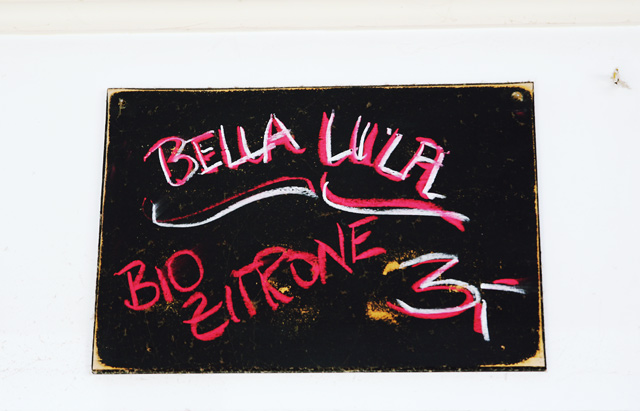 BELLA LUIZA
BIO ZITRONE 3,-